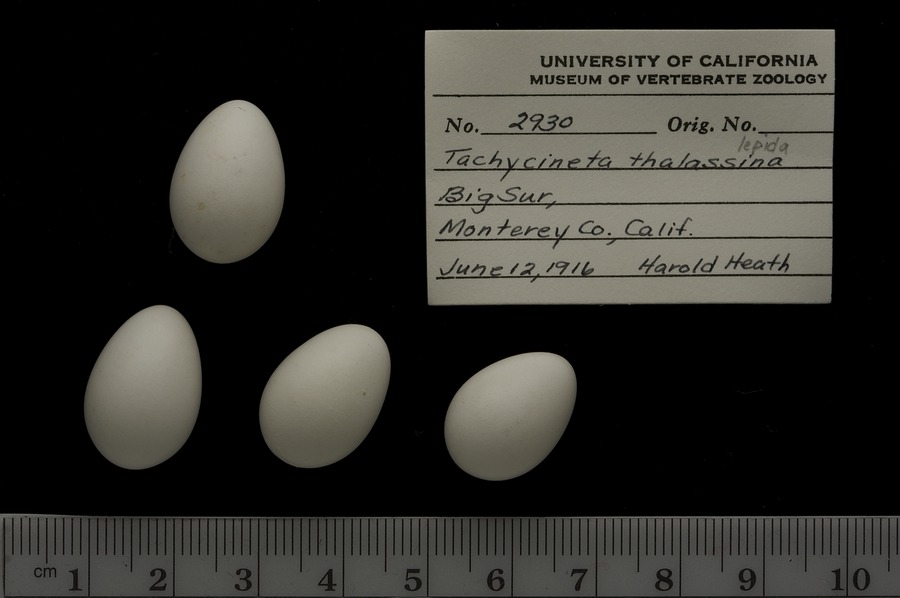 UNIVERSITY OF CALIFORNIA
MUSEUM OF VERTEBRATE ZOOLOGY
No. 2930 Orig. No.
lepida
Tachycineta thalassina
Big Sur,
Monterey Co., Calif.
June 12, 1916 Harold Heath
cm 1 2 3 4 5 6 7 8 9 10